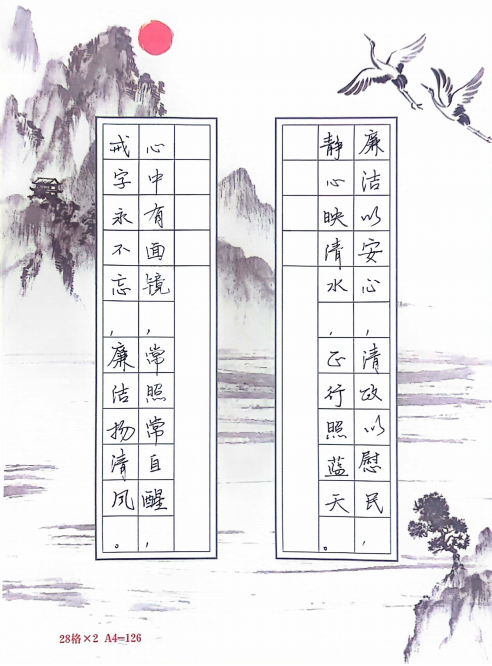 廉洁以安心，清政以慰民，
静心映清水，正行照蓝天。
心中有面镜，常照常自醒，
戒字永不忘，廉洁扬清风。
28格×2 A4=126